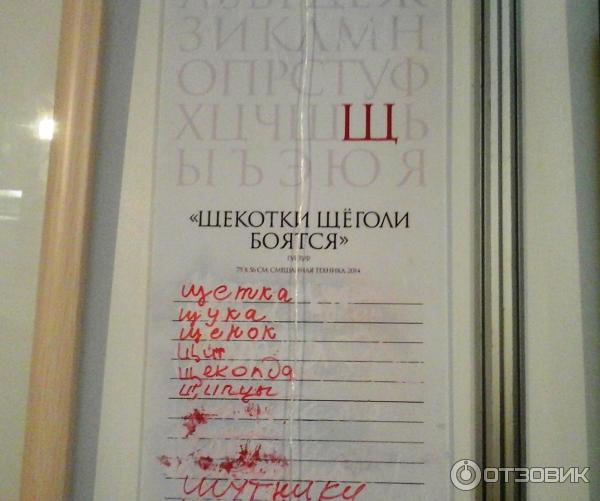 АБВГДЕЖ
ЗИКЛМН
ОПРСТУФ
ХЦЧШЩЬ
ЫЪЭЮЯ
«ЩЕКОТКИ ЩЁГОЛИ
БОЯТСЯ»
75 X 56 СМ, СМЕШАННАЯ ТЕХНИКА, 2014
щетка
щука
щенок
щит
щеколда
щипцы
шутники
ОТЗОВИК